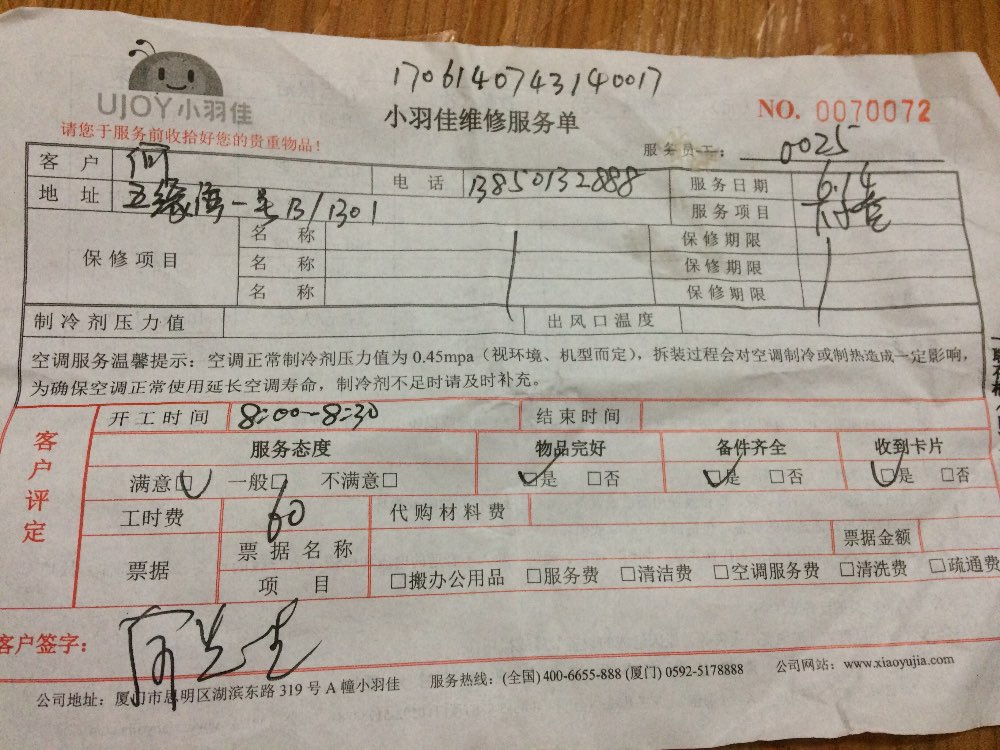 1706140743140017
UJOY小羽佳
小羽佳维修服务单
NO. 0070072
请您于服务前收拾好您的贵重物品！
服务员工： 0025
客户 何 电话 13850132888 服务日期 6.14
地址 五缘 一 B/1301 服务项目
保修项目 名称 保修期限
名称 保修期限
名称 保修期限
制冷剂压力值 出风口温度
空调服务温馨提示：空调正常制冷剂压力值为 0.45mpa（视环境、机型而定），拆装过程会对空调制冷或制热造成一定影响，
为确保空调正常使用延长空调寿命，制冷剂不足时请及时补充。
客户评定
开工时间 8:00-8:30 结束时间
服务态度 物品完好 备件齐全 收到卡片
满意□ 一般□ 不满意□ □是 □否 □是 □否 □是 □否
工时费 60 代购材料费
票据 票据名称 票据金额
项目 □搬办公用品 □服务费 □清洁费 □空调服务费 □清洗费 □疏通费
客户签字： 何先生
公司地址：厦门市思明区湖滨东路 319 号 A 幢小羽佳 服务热线：(全国) 400-6655-888 (厦门) 0592-5178888 公司网站：www.xiaoyujia.com